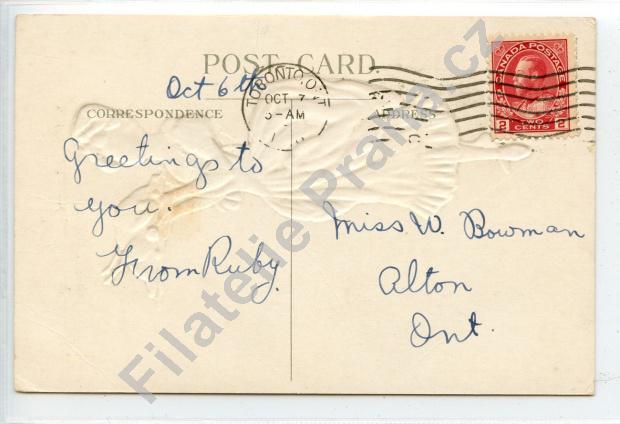 POST CARD.
Oct 6th
TORONTO, ONT
OCT 7
5-AM
CANADA POSTAGE
2 TWO CENTS 2
CORRESPONDENCE
ADDRESS
Greetings to
you.
From Ruby.
Miss W. Bowman
Alton
Ont.
Filatelie Praha.cz